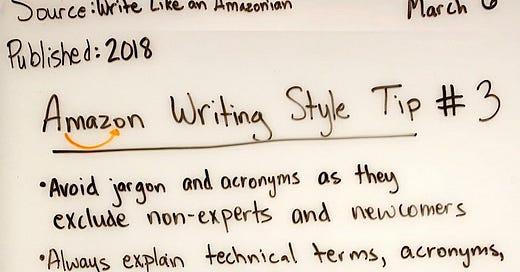 Source: Write Like an Amazonian
March 6
Published: 2018
Amazon Writing Style Tip #3
•Avoid jargon and acronyms as they
exclude non-experts and newcomers
•Always explain technical terms, acronyms,